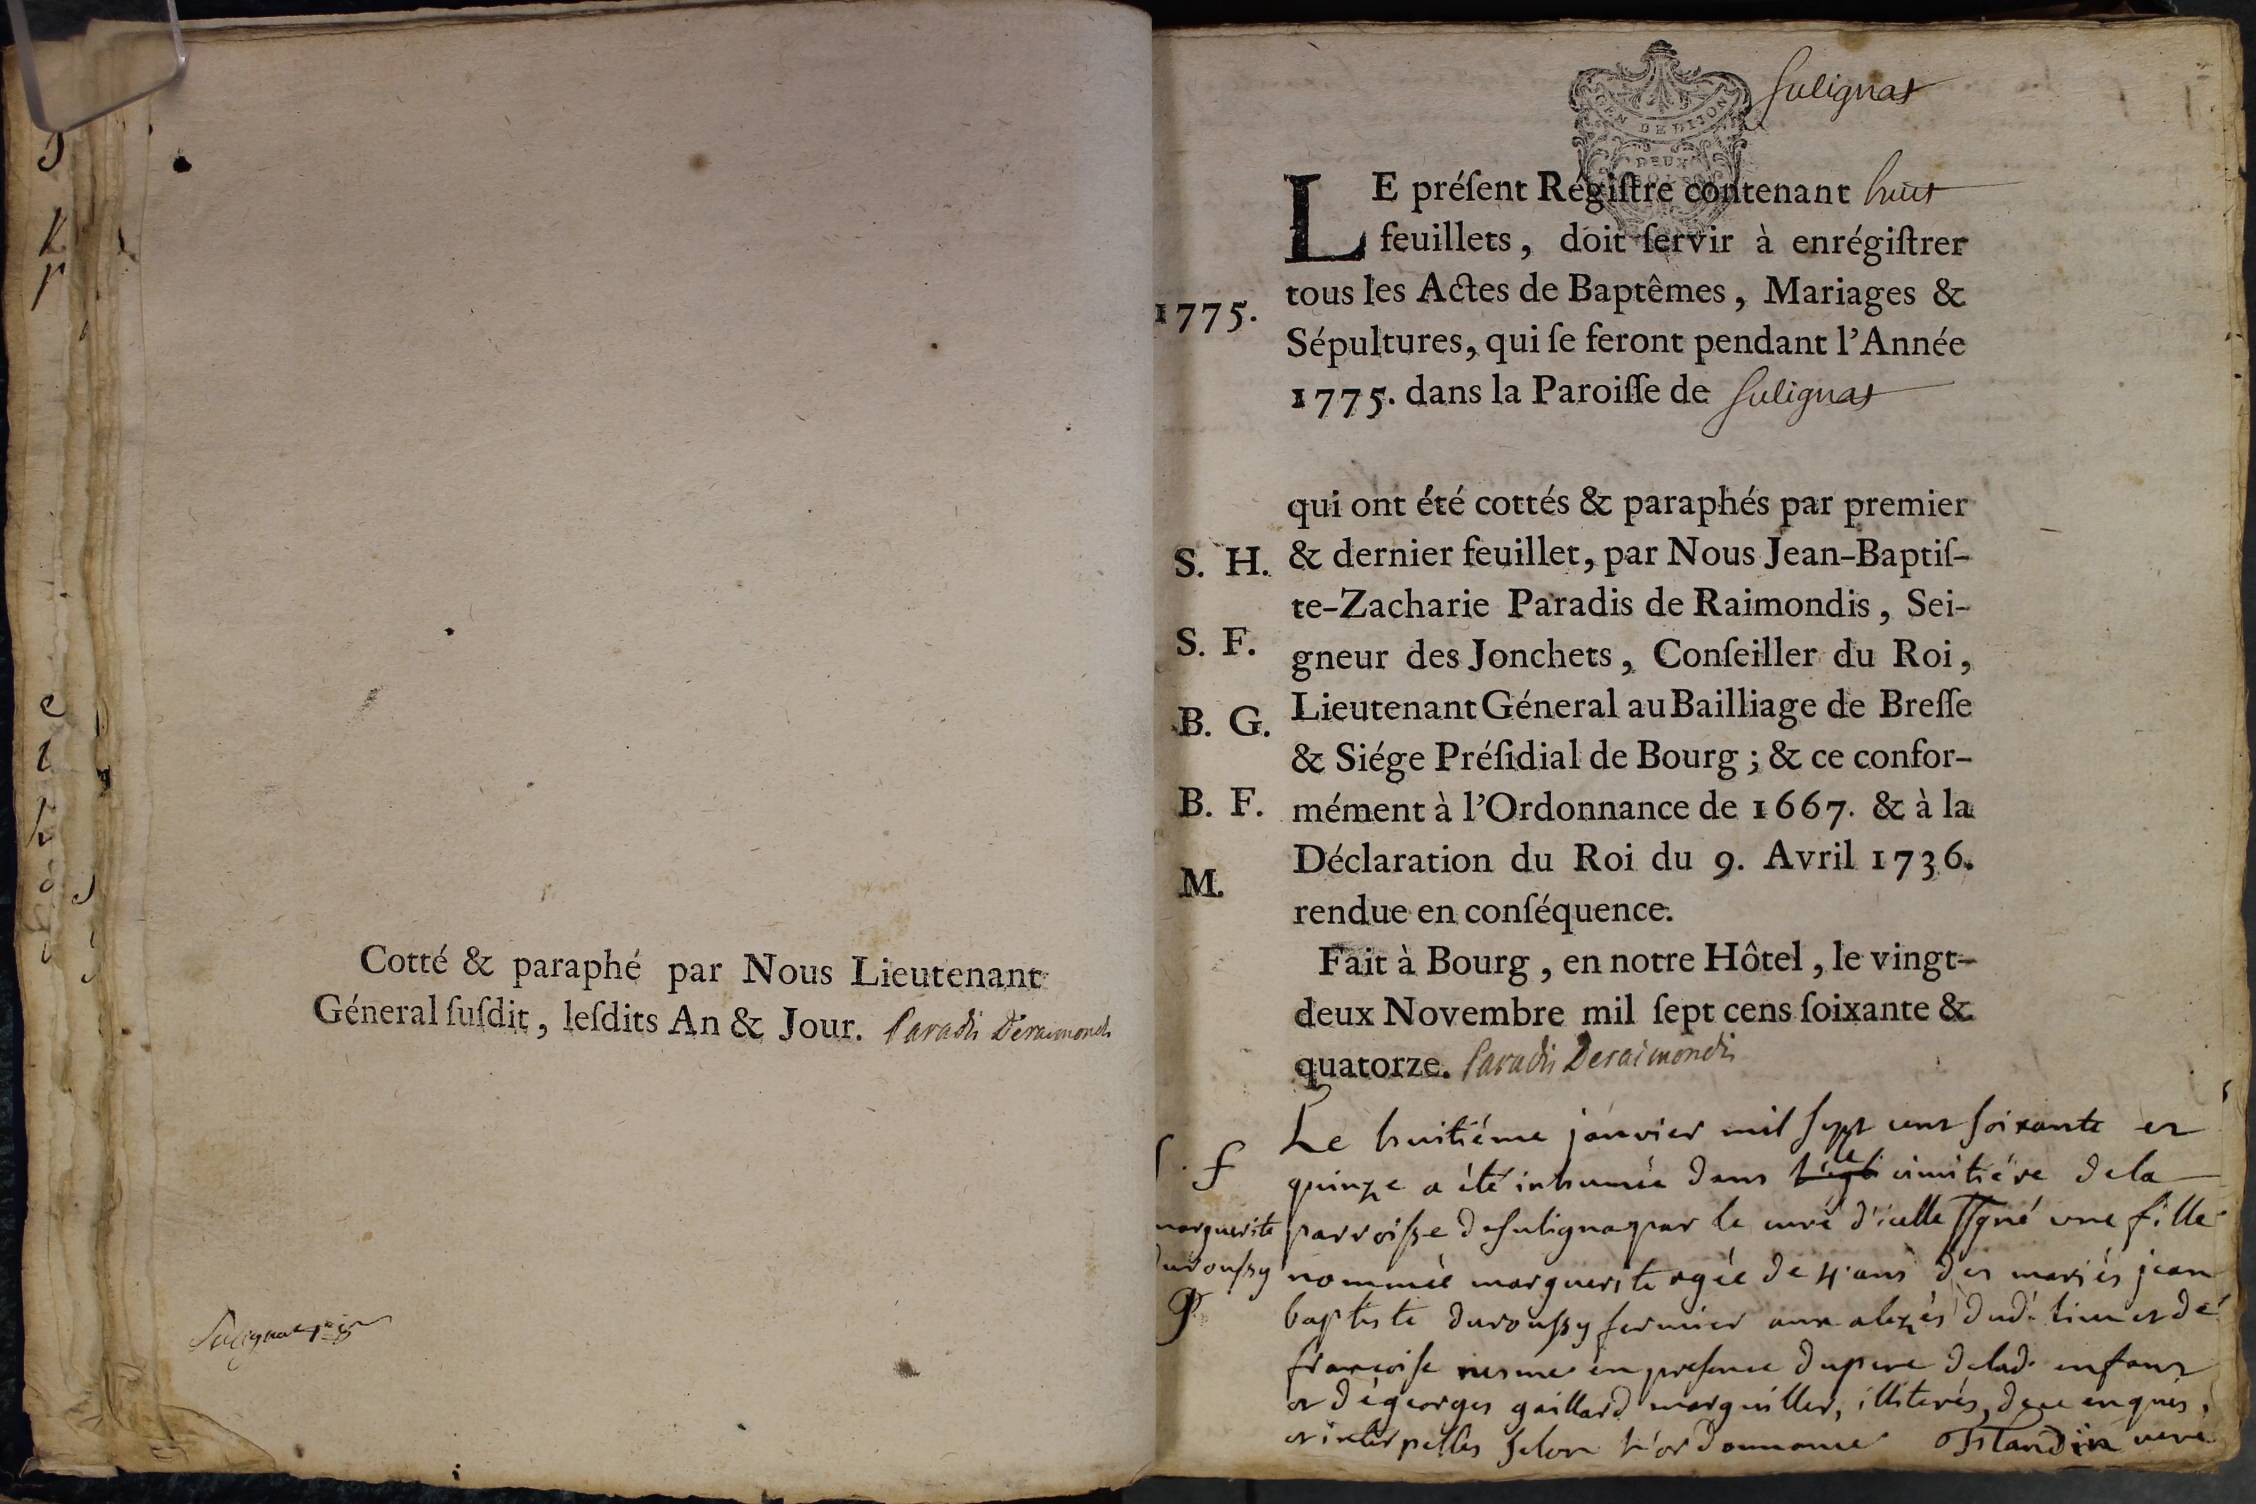 Cotté & paraphé par Nous Lieutenant
Géneral ſuſdit, leſdits An & Jour. Paradis Deraimondis
Sulignat
GEN DE DIJON
DEUX
LE préſent Régiſtre contenant huit
feuillets, doit ſervir à enrégiſtrer
tous les Actes de Baptêmes, Mariages &
1775.
Sépultures, qui ſe feront pendant l'Année
1775. dans la Paroiſſe de Sulignat
qui ont été cottés & paraphés par premier
S. H.
& dernier feuillet, par Nous Jean-Baptiſ-
te-Zacharie Paradis de Raimondis, Sei-
S. F.
gneur des Jonchets, Conſeiller du Roi,
B. G.
Lieutenant Géneral au Bailliage de Breſſe
& Siége Préſidial de Bourg; & ce confor-
B. F.
mément à l'Ordonnance de 1667. & à la
Déclaration du Roi du 9. Avril 1736.
M.
rendue en conſéquence.
Fait à Bourg, en notre Hôtel, le vingt-
deux Novembre mil ſept cens ſoixante &
quatorze. Paradis Deraimondis
S. f
marguerite
duroussy
Le huitiéme janvier mil sept cent soixante et
quinze a été inhumée dans le cimitiére de la
parroisse de suligna par le curé d'icelle ssgné une fille
nommée marguerite agée de 4 ans des mariés jean
baptiste duroussy fermier aux dud. lieu et dé
francoise nesme en presence du pere de lad. enfant
et dé georges gaillard marguiller, illiterés, de ce enquis,
et interpellés selon l'ordonnance